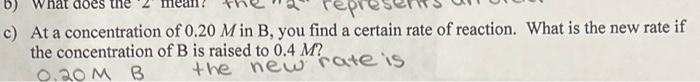 b) What does the "2" mean? the "2" represents an
c) At a concentration of 0.20 M in B, you find a certain rate of reaction. What is the new rate if
the concentration of B is raised to 0.4 M?
0.20 M B the new rate is